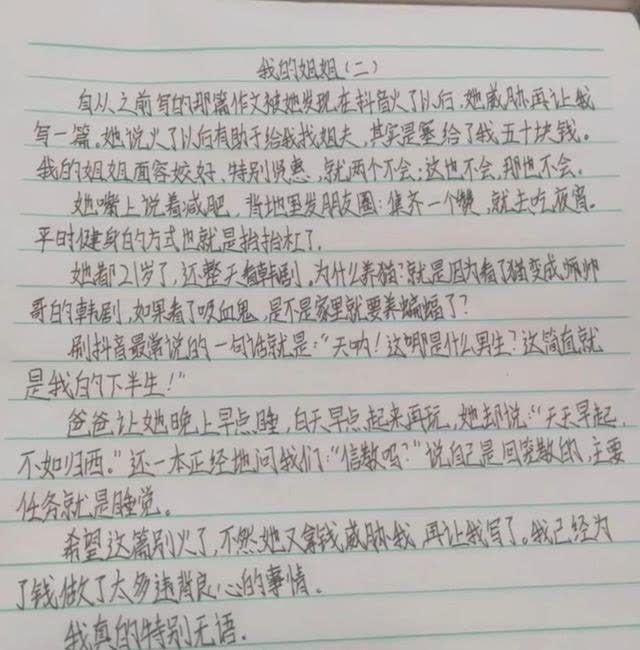 我的姐姐（二）
自从之前写的那篇作文被她发现在抖音火了以后，她威胁再让我
写一篇。她说火了以后有助于给我找姐夫，其实是塞给了我五十块钱。
我的姐姐面容姣好，特别贤惠，就两个不会：这也不会，那也不会。
她嘴上说着减肥，背地里发朋友圈：集齐一个赞，就去吃夜宵。
平时健身的方式也就是抬抬杠了。
她都21岁了，还整天看韩剧。为什么养猫？就是因为看了猫变成帅帅
哥的韩剧，如果看了吸血鬼，是不是家里就要养蝙蝠了？
刷抖音最常说的一句话就是：“天呐！这哪是什么男生？这简直就
是我的下半生！”
爸爸让她晚上早点睡，白天早点起来再玩，她却说：“天天早起，
不如归西。”还一本正经地问我们：“信教吗？”说自己是回笼教的，主要
任务就是睡觉。
希望这篇别火了，不然她又拿钱威胁我，再让我写了。我已经为
了钱做了太多违背良心的事情。
我真的特别无语。